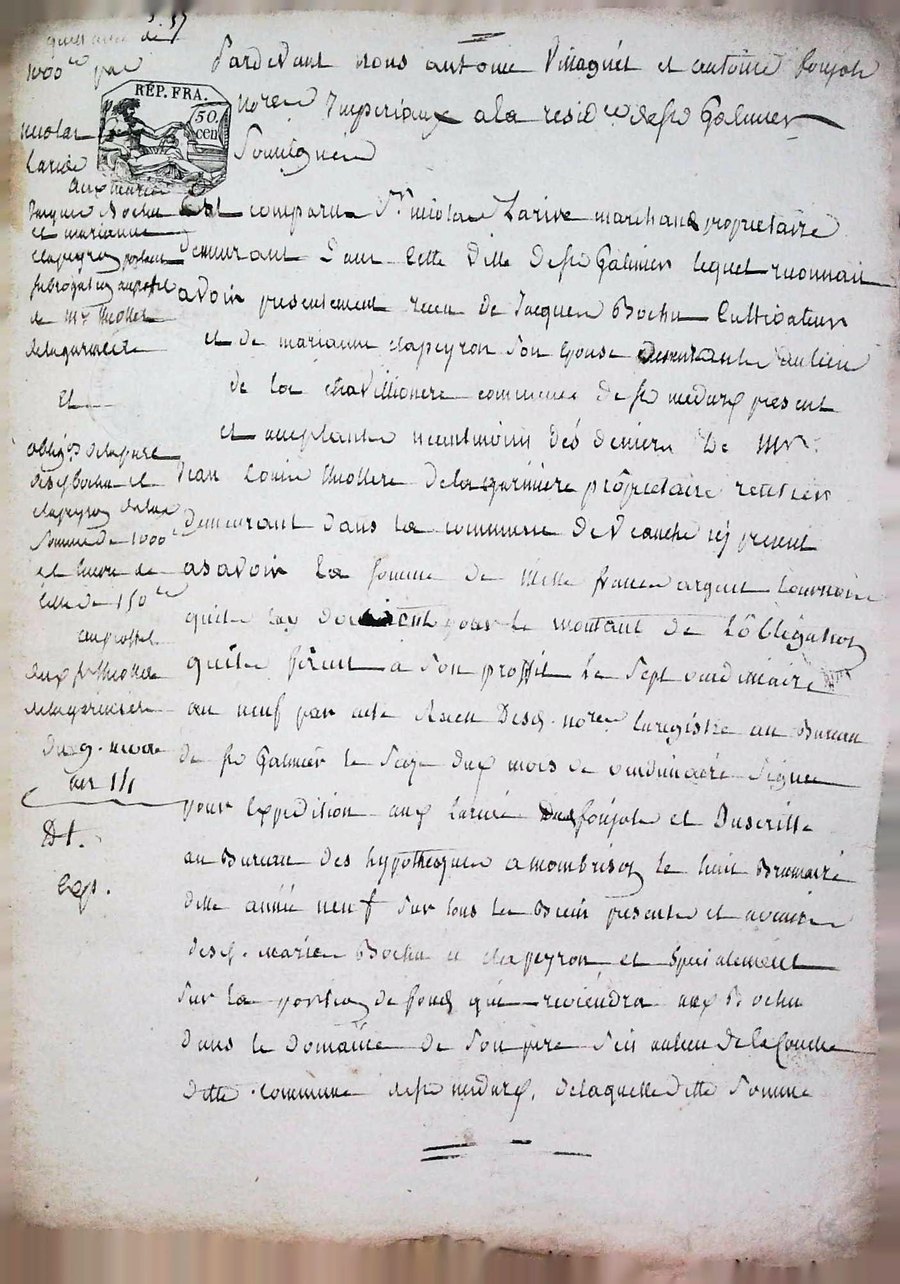 quittance de
1000 par
RÉP. FRA.
50
cen
nicolas
Larive
aux mariés
Jacques Bochu
et marianne
clapeyron portant
subrogation au proffit
de Mr thiollier
delagarniere
Et
obligon de la part
desd bochu et
clapeyron de la
Somme de 1000
et encore de
celle de 150
au proffit
dud sr thiollier
delagarniere
Du 9.
an 14
Dt.
Exp.
Pardevant nous antoine Villagnet et antoine Poujols
nores Imperiaux a la residce de st Galmier
Soussignes
Est comparu Sr nicolas Larive marchand propriétaire
demeurant dans cette ville de st Galmier lequel reconnait
avoir presentement receu de Jacques Bochu Cultivateur
et de marianne clapeyron son epouse demeurants au lieu
de la chavillionere commune de st medard present
et acceptants neantmoins des deniers de Mr
Jean Louis thiollere delagarniere propriétaire rentier
demeurant dans la commune de Veauche icy present
asavoir la somme de Mille francs argent tournois
quils luy doivent pour le montant de Lobligation
quils firent a son proffit le sept vendemiaire
an neuf par acte Recu Desd. nores Enregistré au Bureau
de st Galmier le seize dud mois de vendemiaire Signé
pour Expedition aud Larive Dud poujols et Inscritte
au Bureau des hypotheques a mombrison le huit Brumaire
ditte année neuf sur tous les Biens presents et avenir
desd. mariés Bochu et clapeyron et specialement
sur la portion de fonds qui reviendra aud Bochu
dans le domaine de son pere Scis au lieu de la Couche
ditte commune de st medard, de laquelle ditte Somme